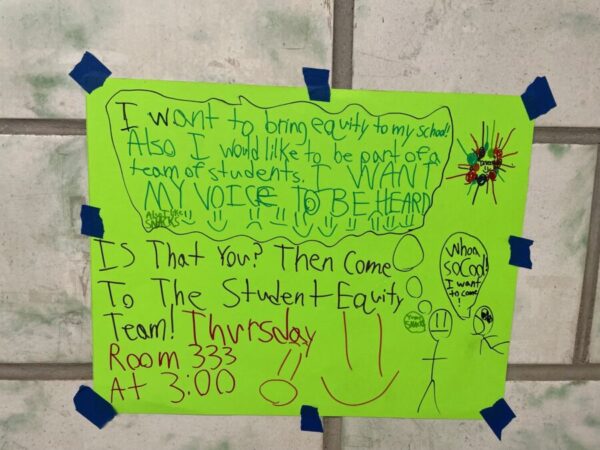 I want to bring equity to my school!
Also I would like to be part of a
team of students. I WANT
MY VOICE TO BE HEARD
Also I like
SNACKS
Is That You? Then Come
To The Student Equity
Team! Thursday
Room 333
At 3:00
Whoa
so Cool!
I want
to come
!
SNACKS